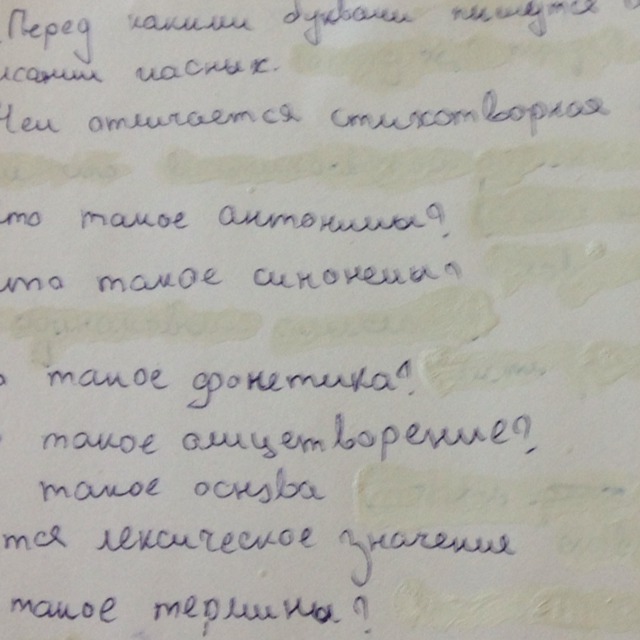 Перед какими буквами пишутся
исании гласных.
Чем отличается стихотворная
что такое антонимы?
что такое синонемы?
такое фонетика?
такое олицетворение?
такое основа
тся лексическое значения
такое термины?